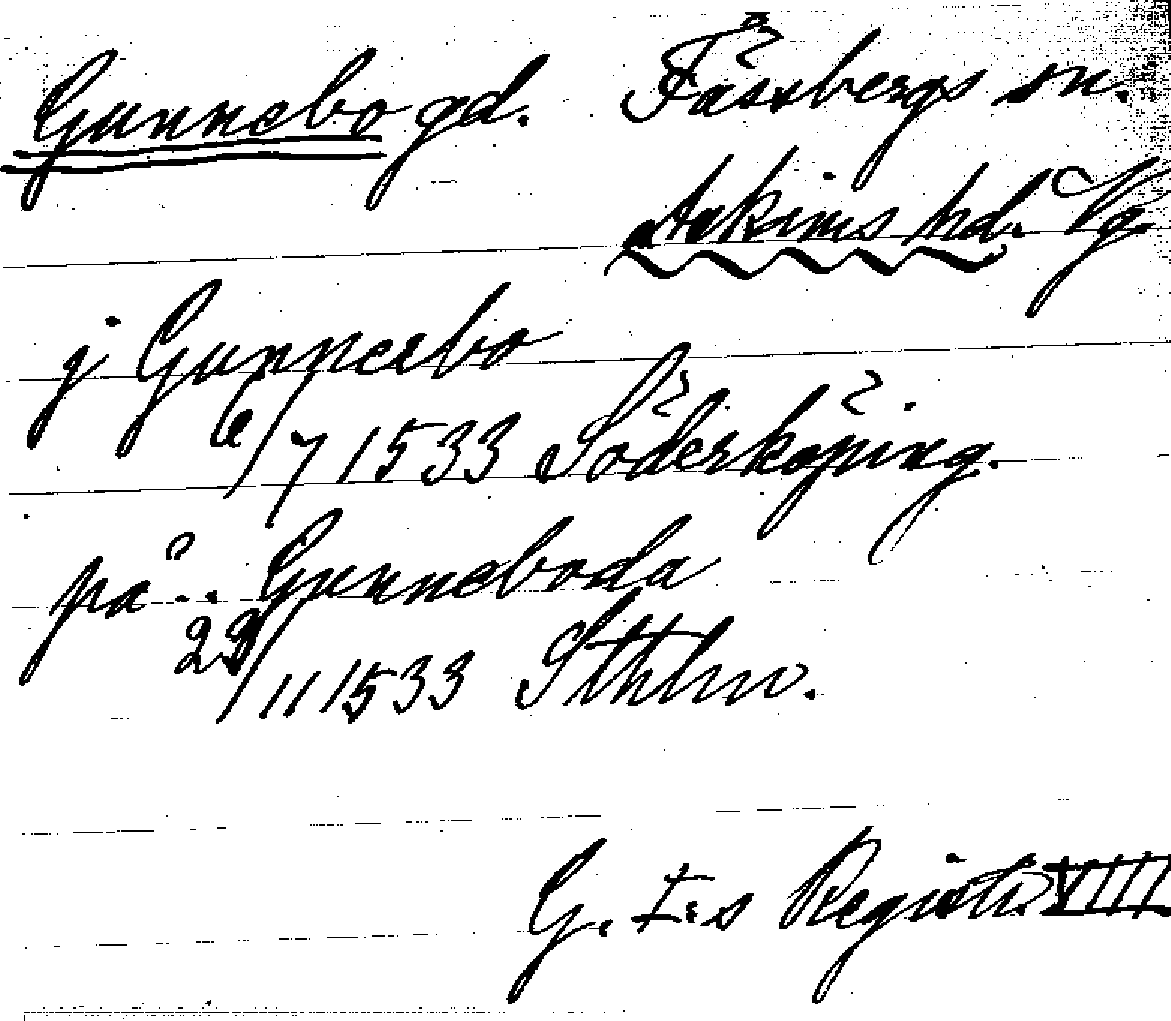 Gunnebo gd. Fässbergs sn.
Askims hd. Vg.
j Gunnerbo
6/7 1533 Söderköping.
på .. Gunneboda
23/11 1533 Sthlm.
G. I:s Registr. VIII